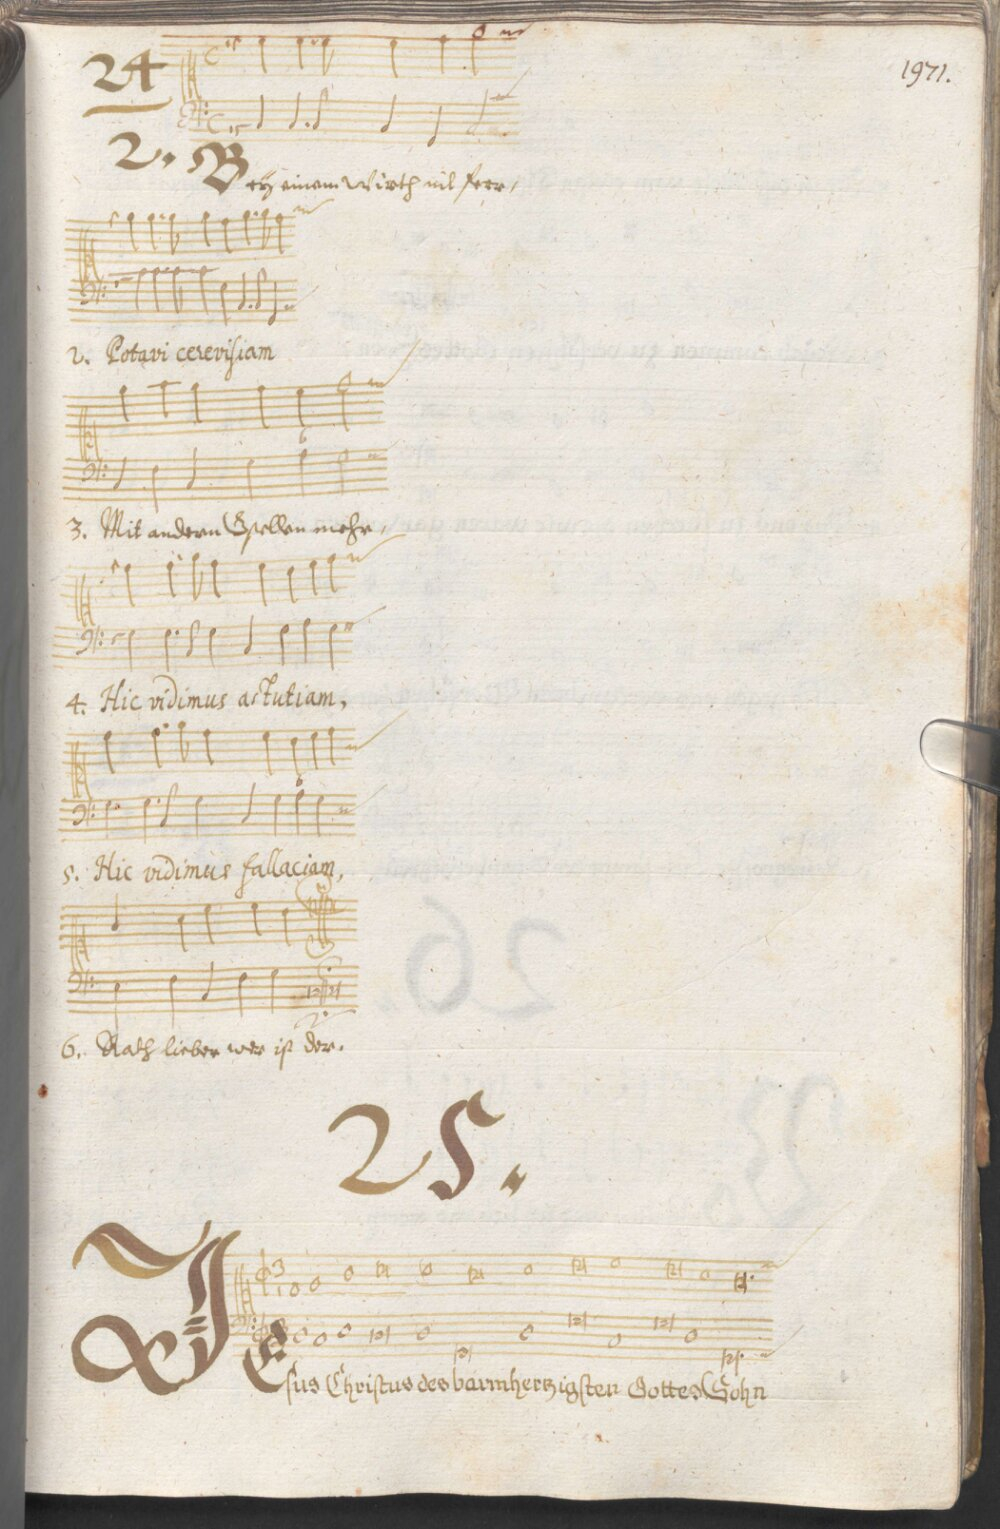 1971.
24
2. Bey einem Wirth nit ferr,
2. Potavi cerevisiam
3. Mit andern Gsellen mehr,
4. Hic vidimus astutiam,
5. Hic vidimus fallaciam,
6. Rath lieber wer ist der.
25.
JEsus Christus des barmhertzigsten Gottes Sohn